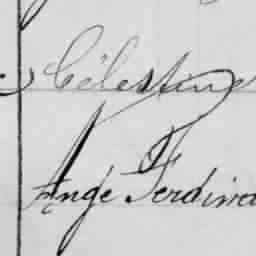 Célestine
Ange Ferdinand